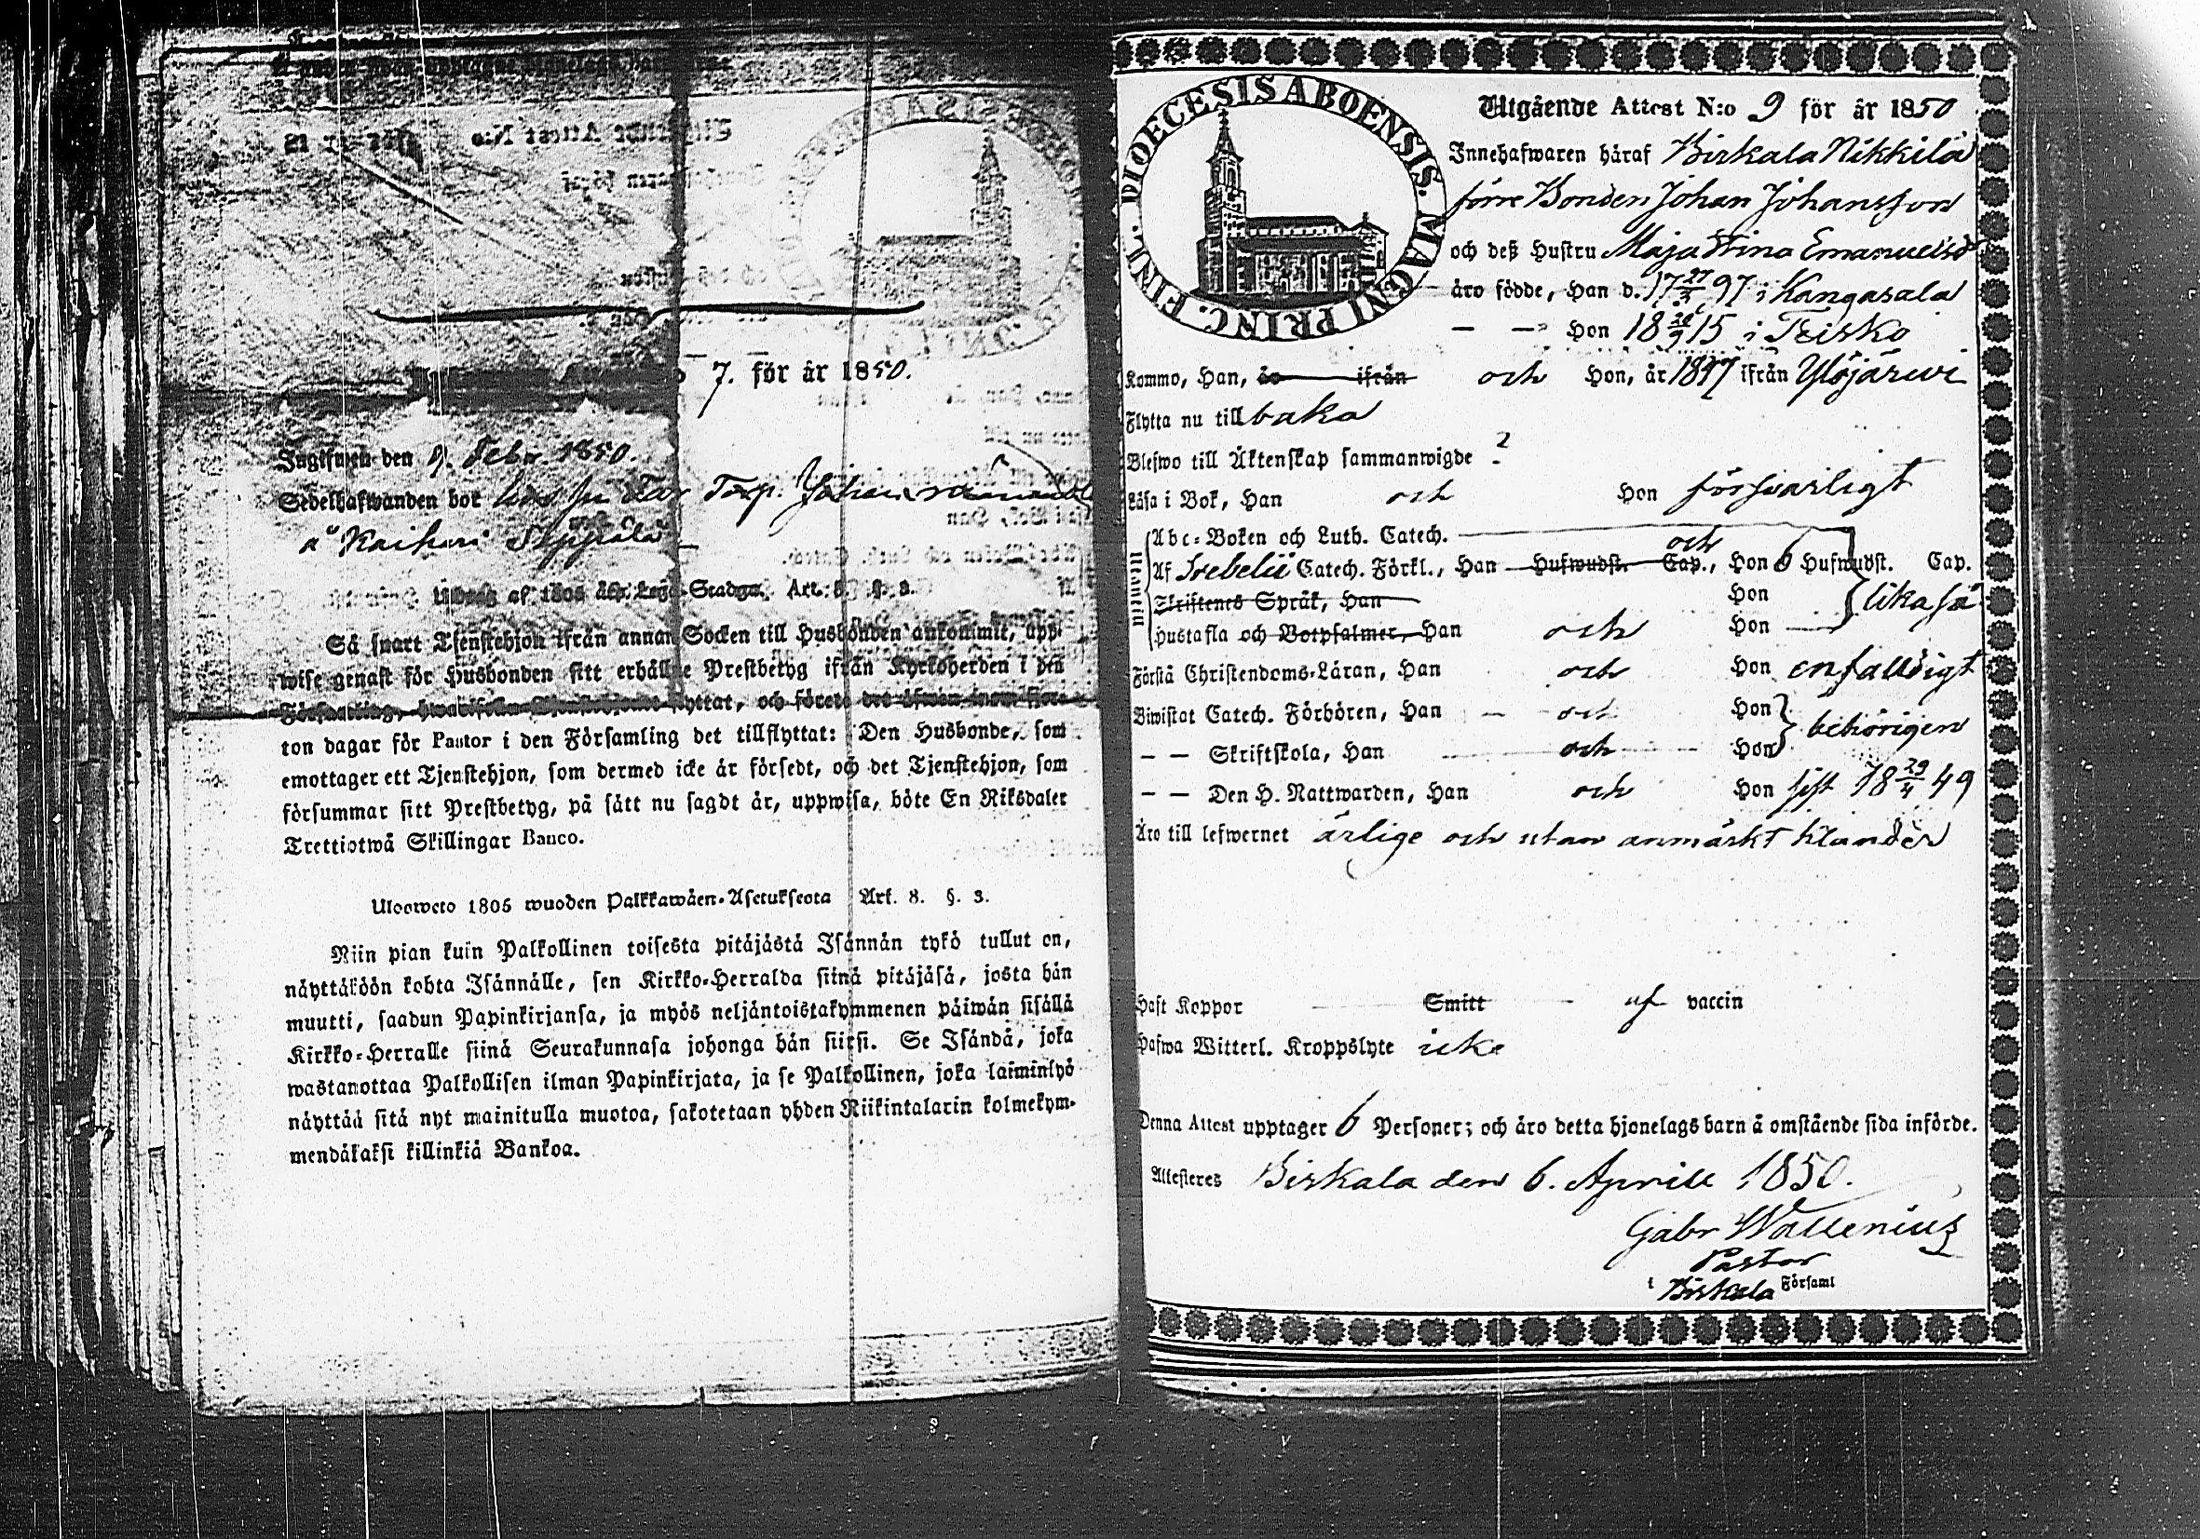 7. för år 1850.
den 9. Febr. 1850.
Sedelhafwanden bor hos Torp. Johan
å Kaihari Seppälä
af 1805 Lego-Stadga. Art. 8. §. 3.
Så snart Tjenstehjon ifrån annan Socken till Husbonden ankommit, upp-
wise genast för Husbonden sitt erhållne Prestbetyg ifrån Kyrkoherden i den
Församling, flyttat, och förete det
ton dagar för Pastor i den Församling det tillflyttat: Den Husbonde, som
emottager ett Tjenstehjon, som dermed icke är försedt, och det Tjenstehjon, som
försummar sitt Prestbetyg, på sätt nu sagdt är, uppwisa, böte En Riksdaler
Trettiotwå Skillingar Banco.
Ulosweto 1805 wuoden Palkkawäen-Asetuksesta Art. 8. §. 3.
Niin pian kuin Palkollinen toisesta pitäjästä Isännän tykö tullut on,
näyttäköön kohta Isännälle, sen Kirkko-Herralda siinä pitäjäsä, josta hän
muutti, saadun Papinkirjansa, ja myös neljäntoistakymmenen päiwän sisällä
Kirkko-Herralle siinä Seurakunnasa johonga hän siirsi. Se Isändä, joka
wastanottaa Palkollisen ilman Papinkirjata, ja se Palkollinen, joka laiminlyö
näyttää sitä nyt mainitulla muotoa, sakotetaan yhden Riikintalarin kolmekym-
mendäkaksi killinkiä Bankoa.
DIOECESIS ABOENSIS. MAGNI PRINC. FINL.
Utgående Attest N:o 9 för år 1850
Innehafwaren häraf Birkala Nikkilä
förre Bonden Johan Johansson
och deß Hustru Maja Stina Emanuelsd
äro födde, Han d. 17 27/5 97 i Kangasala
— — Hon 18 20/9 15 i Teisko
Kommo, Han, år ifrån och Hon, år 1847 ifrån Ylöjärwi
Flytta nu till baka
Blefwo till Äktenskap sammanwigde ?
Läsa i Bok, Han och Hon förswarligt
Utantill
Abc-Boken och Luth. Catech.
Af Svebelii Catech. Förkl., Han Hufwudst. Cap., och Hon 6 Hufwudst. Cap.
Skriftenes Språk, Han Hon likaså
Hustafla och Botpsalmer, Han och Hon
Förstå Christendoms-Läran, Han och Hon enfalldigt
Biwistat Catech. Förhören, Han — och Hon behörigen
— — Skriftskola, Han och Hon
— — Den H. Nattwarden, Han och Hon sist 18 29/4 49
Äro till lefwernet ärlige och utan anmärkt klander
Haft Koppor Smitt af vaccin
Hafwa Witterl. Kroppslyte icke
Denna Attest upptager 6 Personer; och äro detta hjonelags barn å omstående sida införde.
Attesteres Birkala den 6. Aprill 1850.
Gabr Wallenius
Pastor
i Birkala Församl